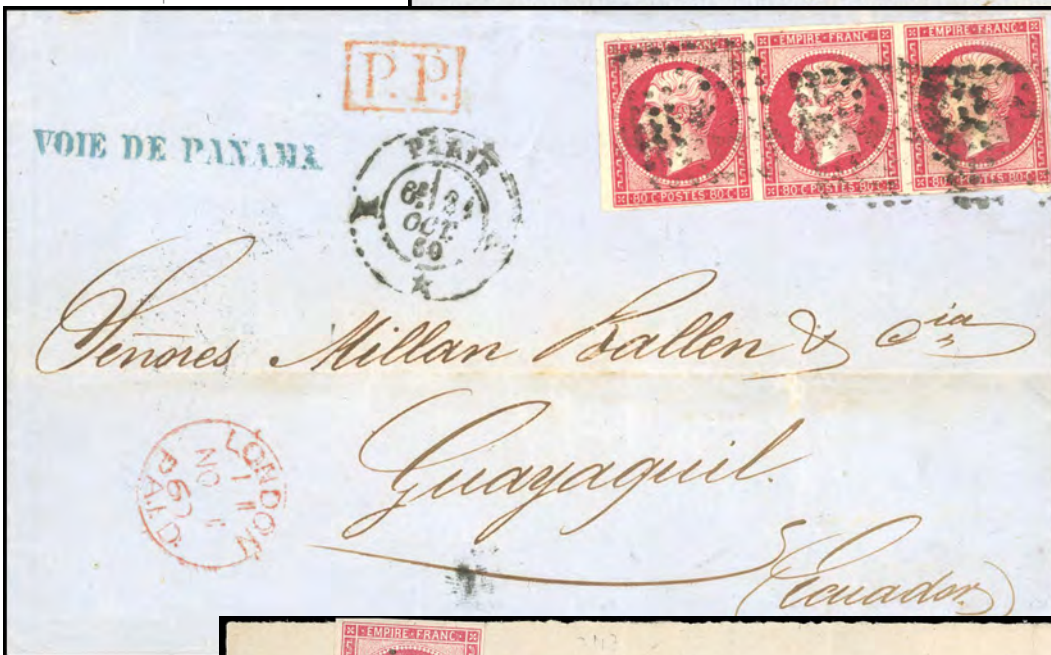 P.P.
EMPIRE FRANC EMPIRE FRANC
80 C POSTES 80 C 80 C POSTES 80 C 80 C POSTES 80 C
VOIE DE PANAMA
PARIS
OCT.
60
Señores Millan Ballen & Cia
Guayaquil
Ecuador
LONDON
NO
60
PAID
EMPIRE FRANC